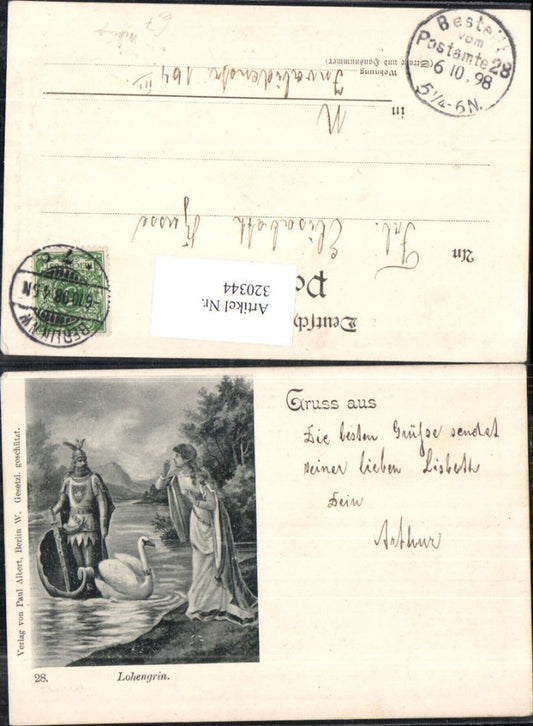 Bestellt
vom
Postamte 28
6 10. 98
5¼-6N.
Deutsch
Po
An
Frl. Elisabeth
in
N
Invalidenstr. 164 III
Wohnung
(Straße und Hausnummer)
BERLIN N.W.
6.10.98.4-5N
REICHSPOST
Artikel Nr.
320344
Gruss aus
Die besten Grüße sendet
seiner lieben Lisbeth
Dein
Arthur
Verlag von Paul Albert, Berlin W. Gesetzl. geschützt.
28.
Lohengrin.